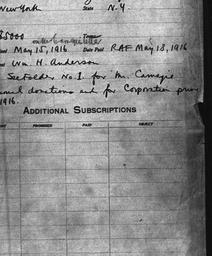 New York State N.Y.
$5000
May 15, 1916 Date Paid RAF May 18, 1916
Wm. H. Anderson
See Folder No. 1 for Mr. Carnegie
donations and for Corporation prior
1916.
ADDITIONAL SUBSCRIPTIONS
PROMISED PAID OBJECT